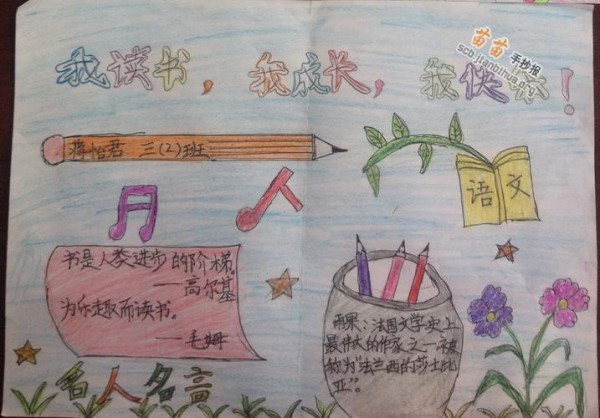 我读书，我成长，我快乐！
苗苗手抄报
scb.jianbihua.org
蒋怡君 三(2)班
语文
书是人类进步的阶梯。
——高尔基
为乐趣而读书。
——毛姆
雨果：法国文学史上
最伟大的作家之一，被
称为“法兰西的莎士比
亚”。